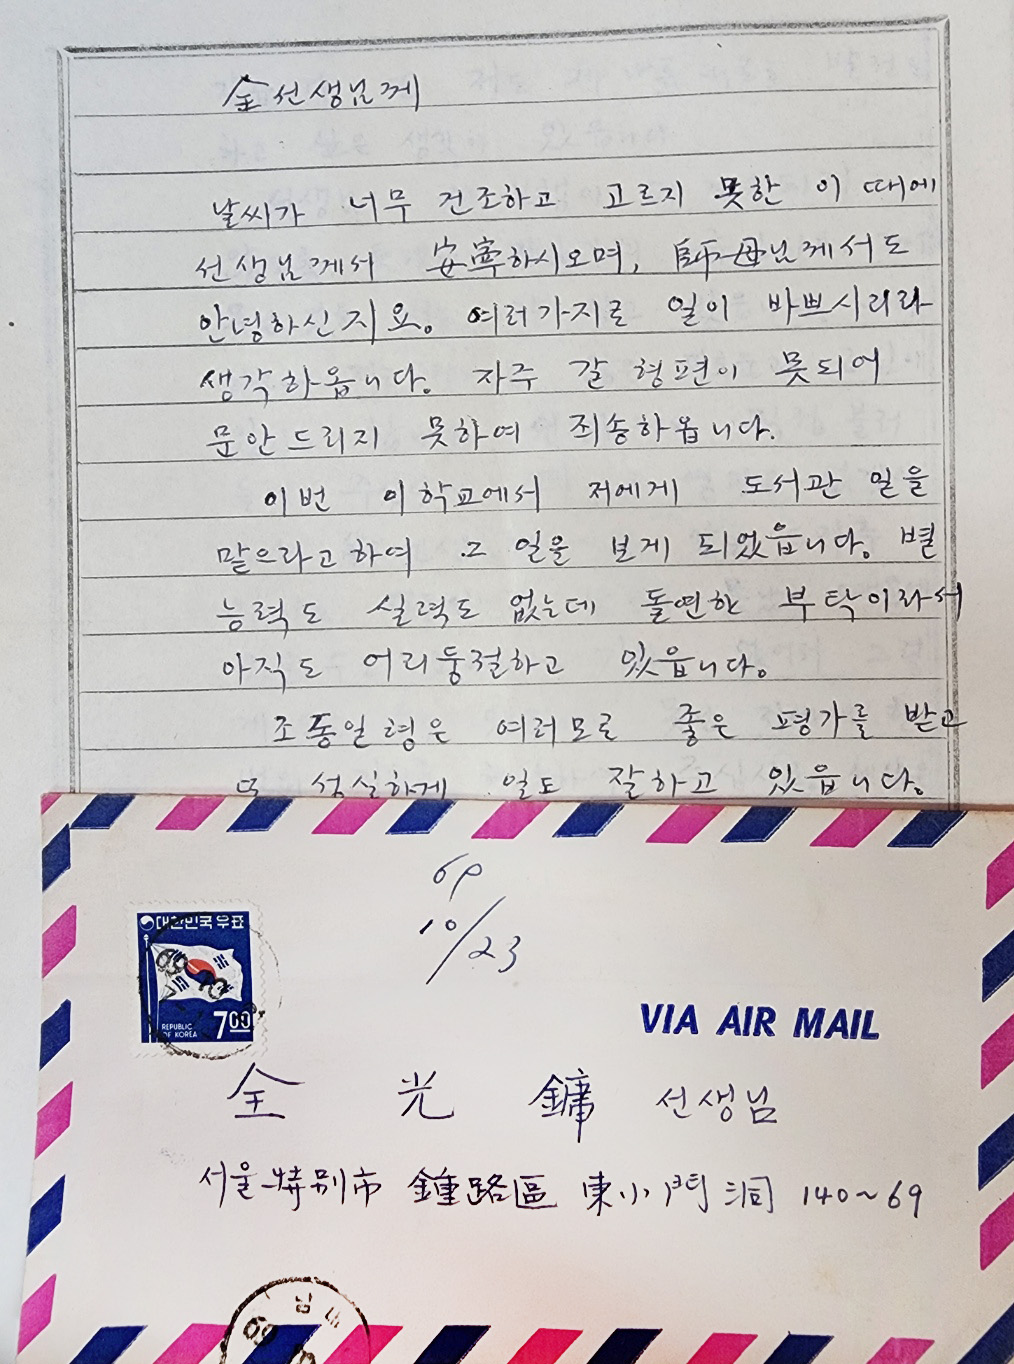 全선생님께
날씨가 너무 건조하고 고르지 못한 이 때에
선생님께서 安寧하시오며, 師母님께서도
안녕하신지요. 여러가지로 일이 바쁘시리라
생각하옵니다. 자주 갈 형편이 못되어
문안드리지 못하여 죄송하옵니다.
이번 이학교에서 저에게 도서관 일을
맡으라고하여 그 일을 보게 되었읍니다. 별
능력도 실력도 없는데 돌연한 부탁이라서
아직도 어리둥절하고 있읍니다.
조동일형은 여러모로 좋은 평가를 받고
또 성실하게 일도 잘하고 있읍니다.
69
10/23
대한민국우표
REPUBLIC
OF KOREA
700
VIA AIR MAIL
全光鏞 선생님
서울特別市 鍾路區 東小門洞 140~69
69